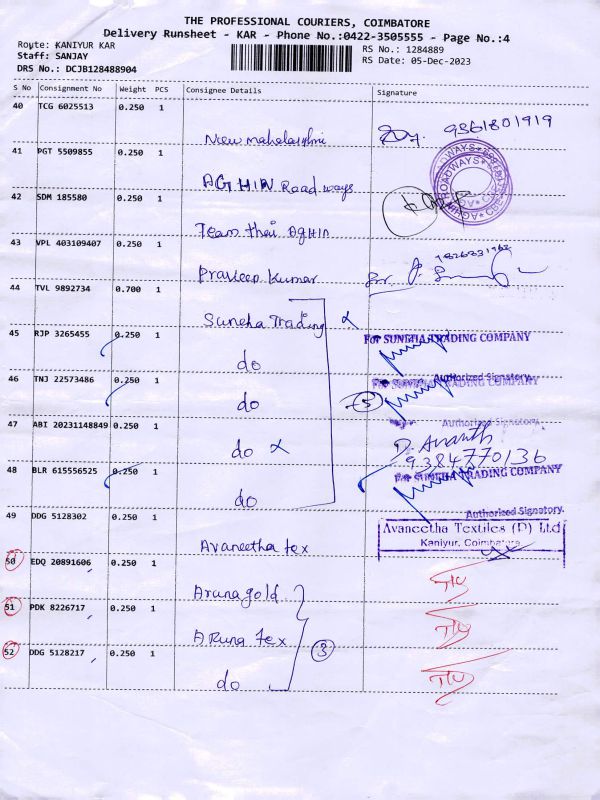 THE PROFESSIONAL COURIERS, COIMBATORE
Delivery Runsheet - KAR - Phone No.:0422-3505555 - Page No.:4
Route: KANIYUR KAR
RS No.: 1284889
Staff: SANJAY
RS Date: 05-Dec-2023
DRS No.: DCJB128488904
S No Consignment No Weight PCS Consignee Details Signature
40 TCG 6025513 0.250 1
New mahalaxmi 9361801919
41 PGT 5509855 0.250 1
AGHIN Road ways
42 SDM 185580 0.250 1
Team thai aghin
43 VPL 403109407 0.250 1
Praveep Kumar
44 TVL 9892734 0.700 1
Suneha Trading
For SUNEHA TRADING COMPANY
45 RJP 3265455 0.250 1
do
Authorized Signatory.
46 TNJ 22573486 0.250 1
For SUNEHA TRADING COMPANY
do 5
Authorized Signatory.
47 ABI 20231148849 0.250 1
do D. Ananth
9384770136
48 BLR 615556525 0.250 1
For SUNEHA TRADING COMPANY
do
Authorized Signatory.
49 DDG 5128302 0.250 1
Avaneetha Textiles (P) Ltd
Kaniyur, Coimbatore
Avaneetha tex
50 EDQ 20891606 0.250 1
Aruna gold
51 PDK 8226717 0.250 1
Aruna Tex
52 DDG 5128217 0.250 1
3
do